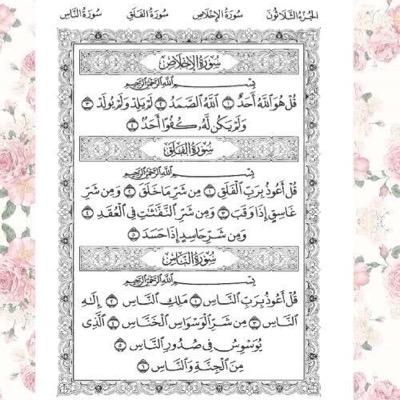 الجزء الثلاثون سورة الإخلاص سورة الفلق سورة الناس
سُورَةُ الإِخْلَاصِ
بِسْمِ اللَّهِ الرَّحْمَٰنِ الرَّحِيمِ
قُلْ هُوَ اللَّهُ أَحَدٌ ١ اللَّهُ الصَّمَدُ ٢ لَمْ يَلِدْ وَلَمْ يُولَدْ ٣
وَلَمْ يَكُن لَّهُ كُفُوًا أَحَدٌ ٤
سُورَةُ الفَلَقِ
بِسْمِ اللَّهِ الرَّحْمَٰنِ الرَّحِيمِ
قُلْ أَعُوذُ بِرَبِّ الْفَلَقِ ١ مِن شَرِّ مَا خَلَقَ ٢ وَمِن شَرِّ
غَاسِقٍ إِذَا وَقَبَ ٣ وَمِن شَرِّ النَّفَّاثَاتِ فِي الْعُقَدِ ٤
وَمِن شَرِّ حَاسِدٍ إِذَا حَسَدَ ٥
سُورَةُ النَّاسِ
بِسْمِ اللَّهِ الرَّحْمَٰنِ الرَّحِيمِ
قُلْ أَعُوذُ بِرَبِّ النَّاسِ ١ مَلِكِ النَّاسِ ٢ إِلَٰهِ
النَّاسِ ٣ مِن شَرِّ الْوَسْوَاسِ الْخَنَّاسِ ٤ الَّذِي
يُوَسْوِسُ فِي صُدُورِ النَّاسِ ٥
مِنَ الْجِنَّةِ وَالنَّاسِ ٦